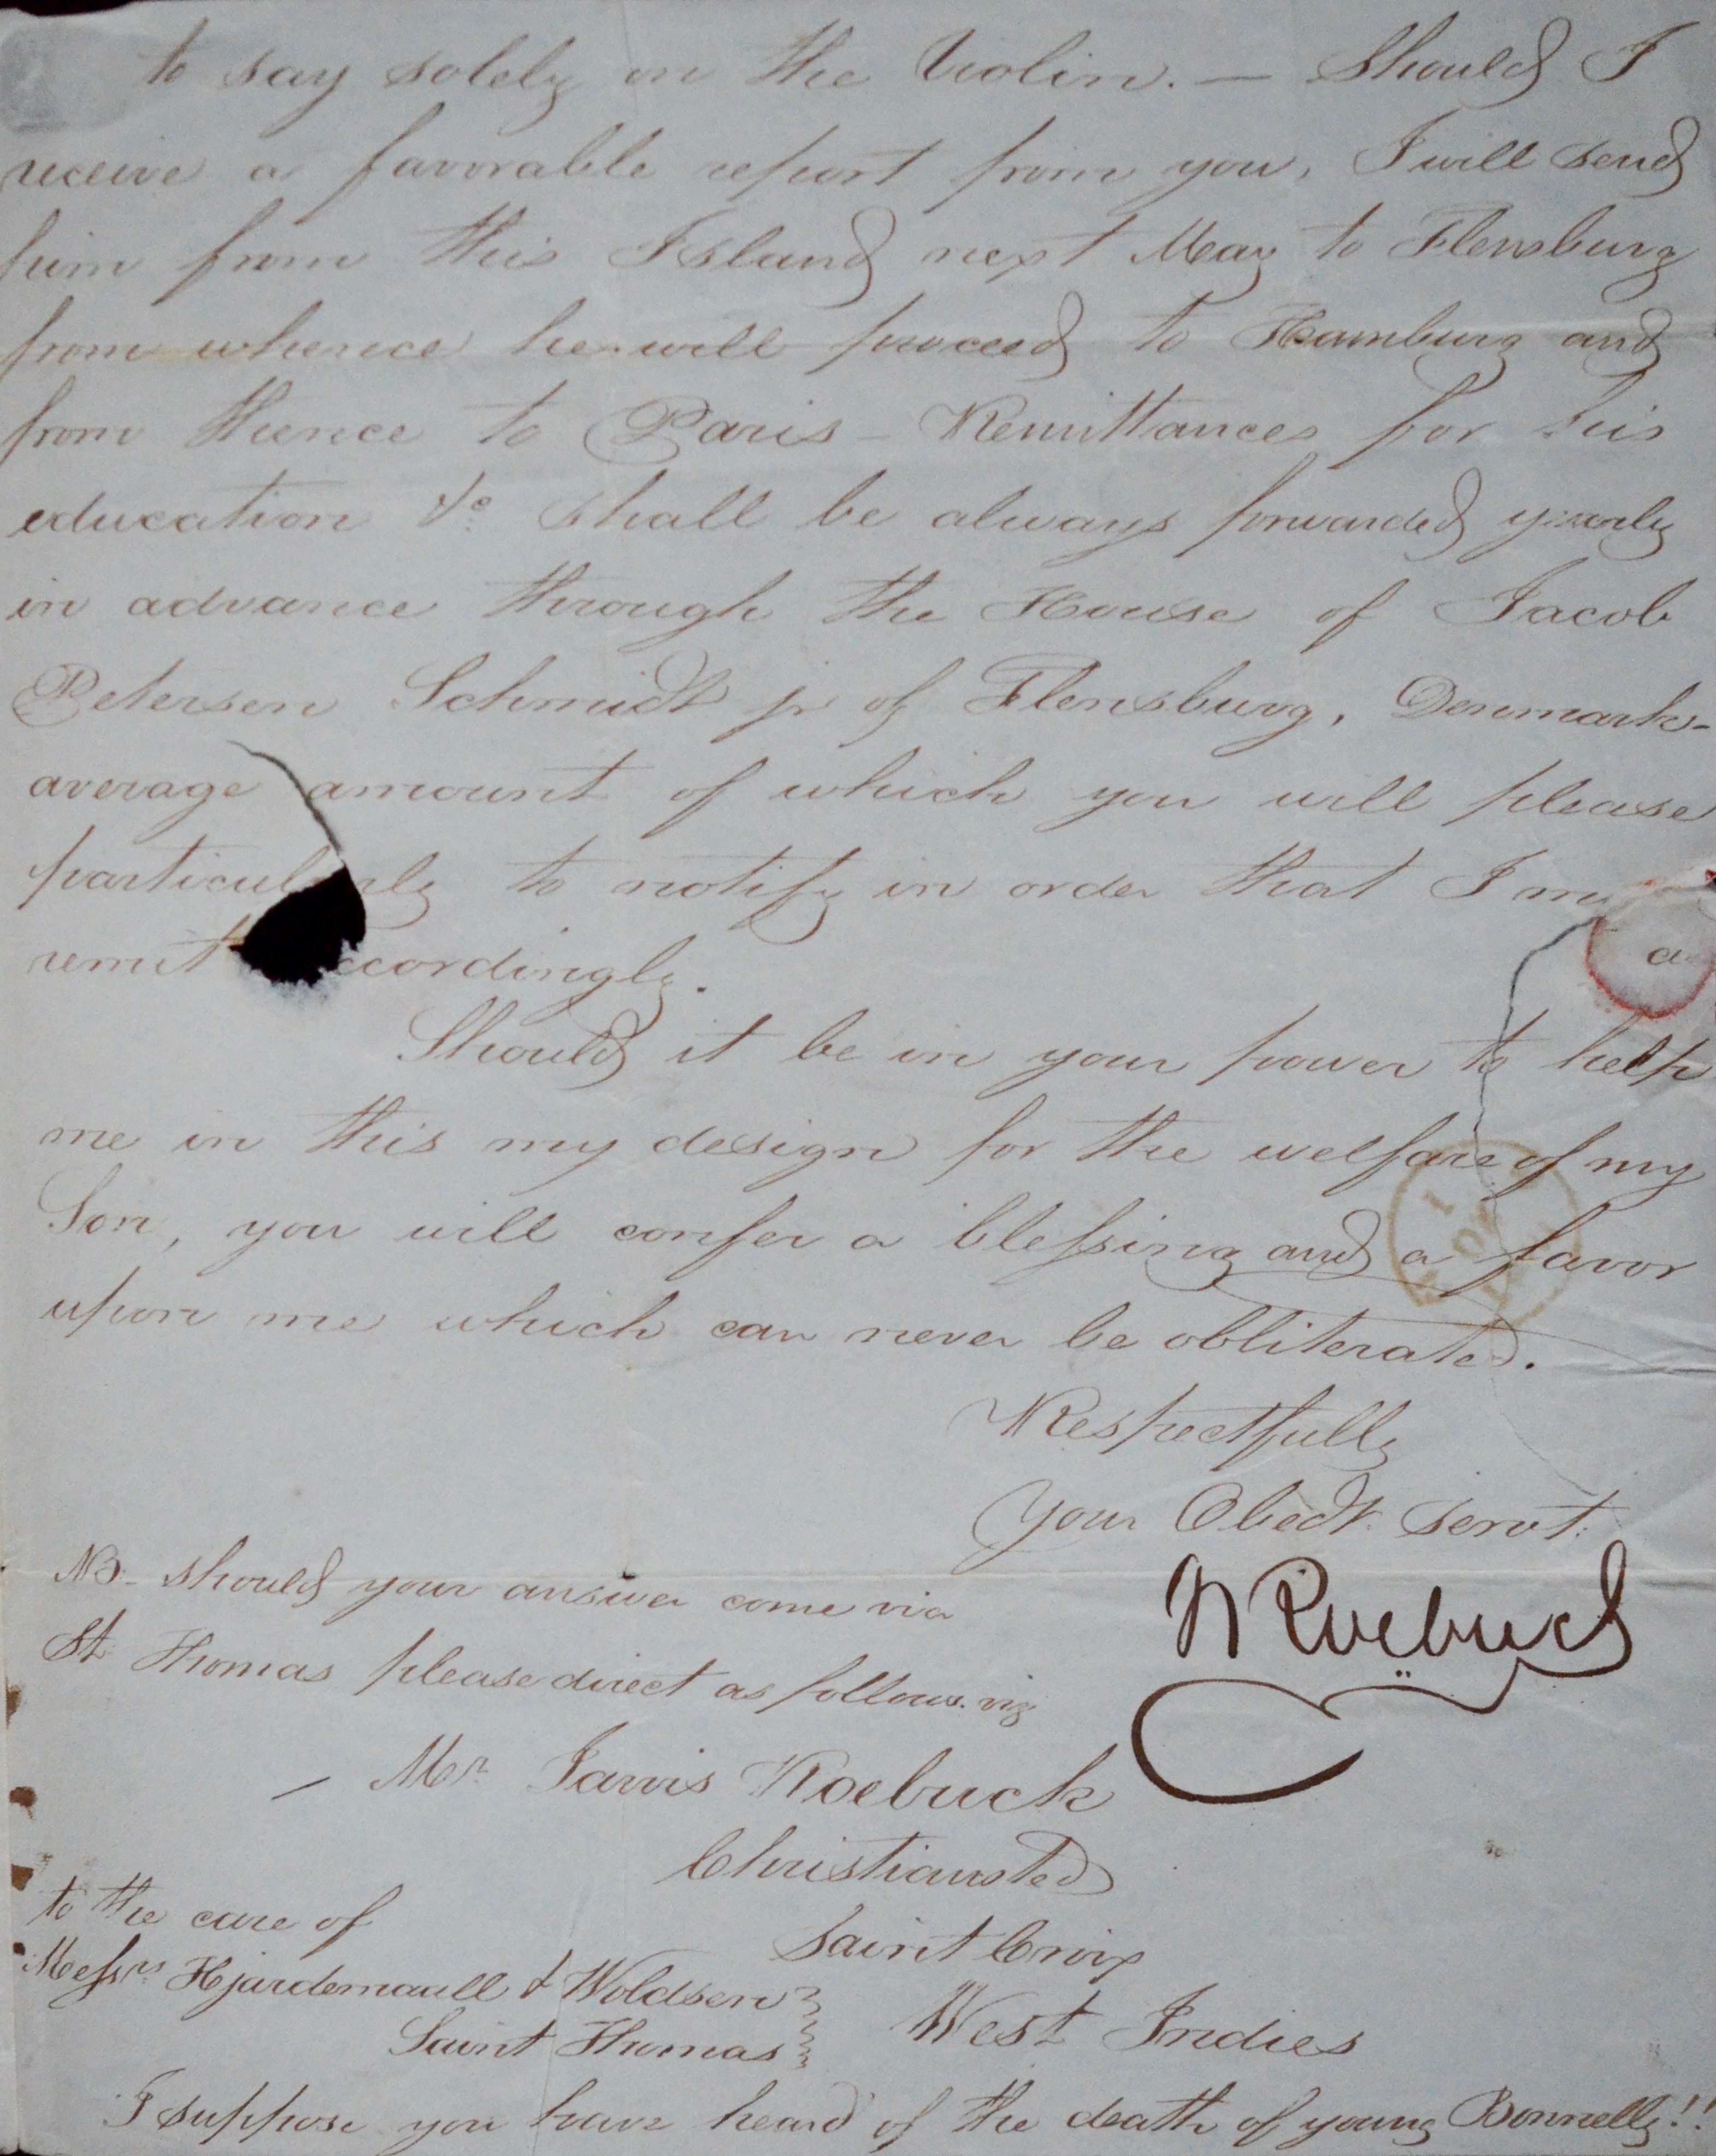 to say solely on the Violin. — Should I
receive a favorable report from you, I will send
him from this Island next May to Flensburg
from whence he will proceed to Hamburg and
from thence to Paris – Remittances for his
education &c shall be always forwarded yearly
in advance through the House of Jacob
Petersen Schmidt jr of Flensburg, Denmark –
average amount of which you will please
particularly to notify in order that I
remit accordingly.
a
Should it be in your power to help
me in this my design for the welfare of my
Son, you will confer a blessing and a favor
upon me which can never be obliterated.
Respectfully
Your Obedt. Servt.
Roebuck
NB – should your answer come via
St. Thomas please direct as follows. viz
– Mr. Jarvis Roebuck
Christiansted
Saint Croix
West Indies
to the care of
Messrs Hjardemaall & Woldsen
Saint Thomas
I suppose you have heard of the death of young Bonnelly!!